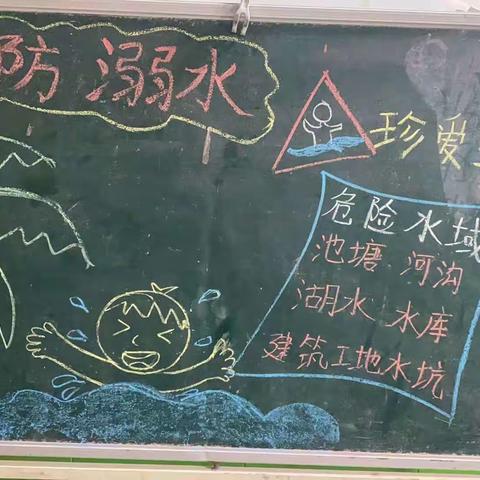 防溺水
珍爱
危险水域
池塘 河沟
湖水 水库
建筑工地水坑